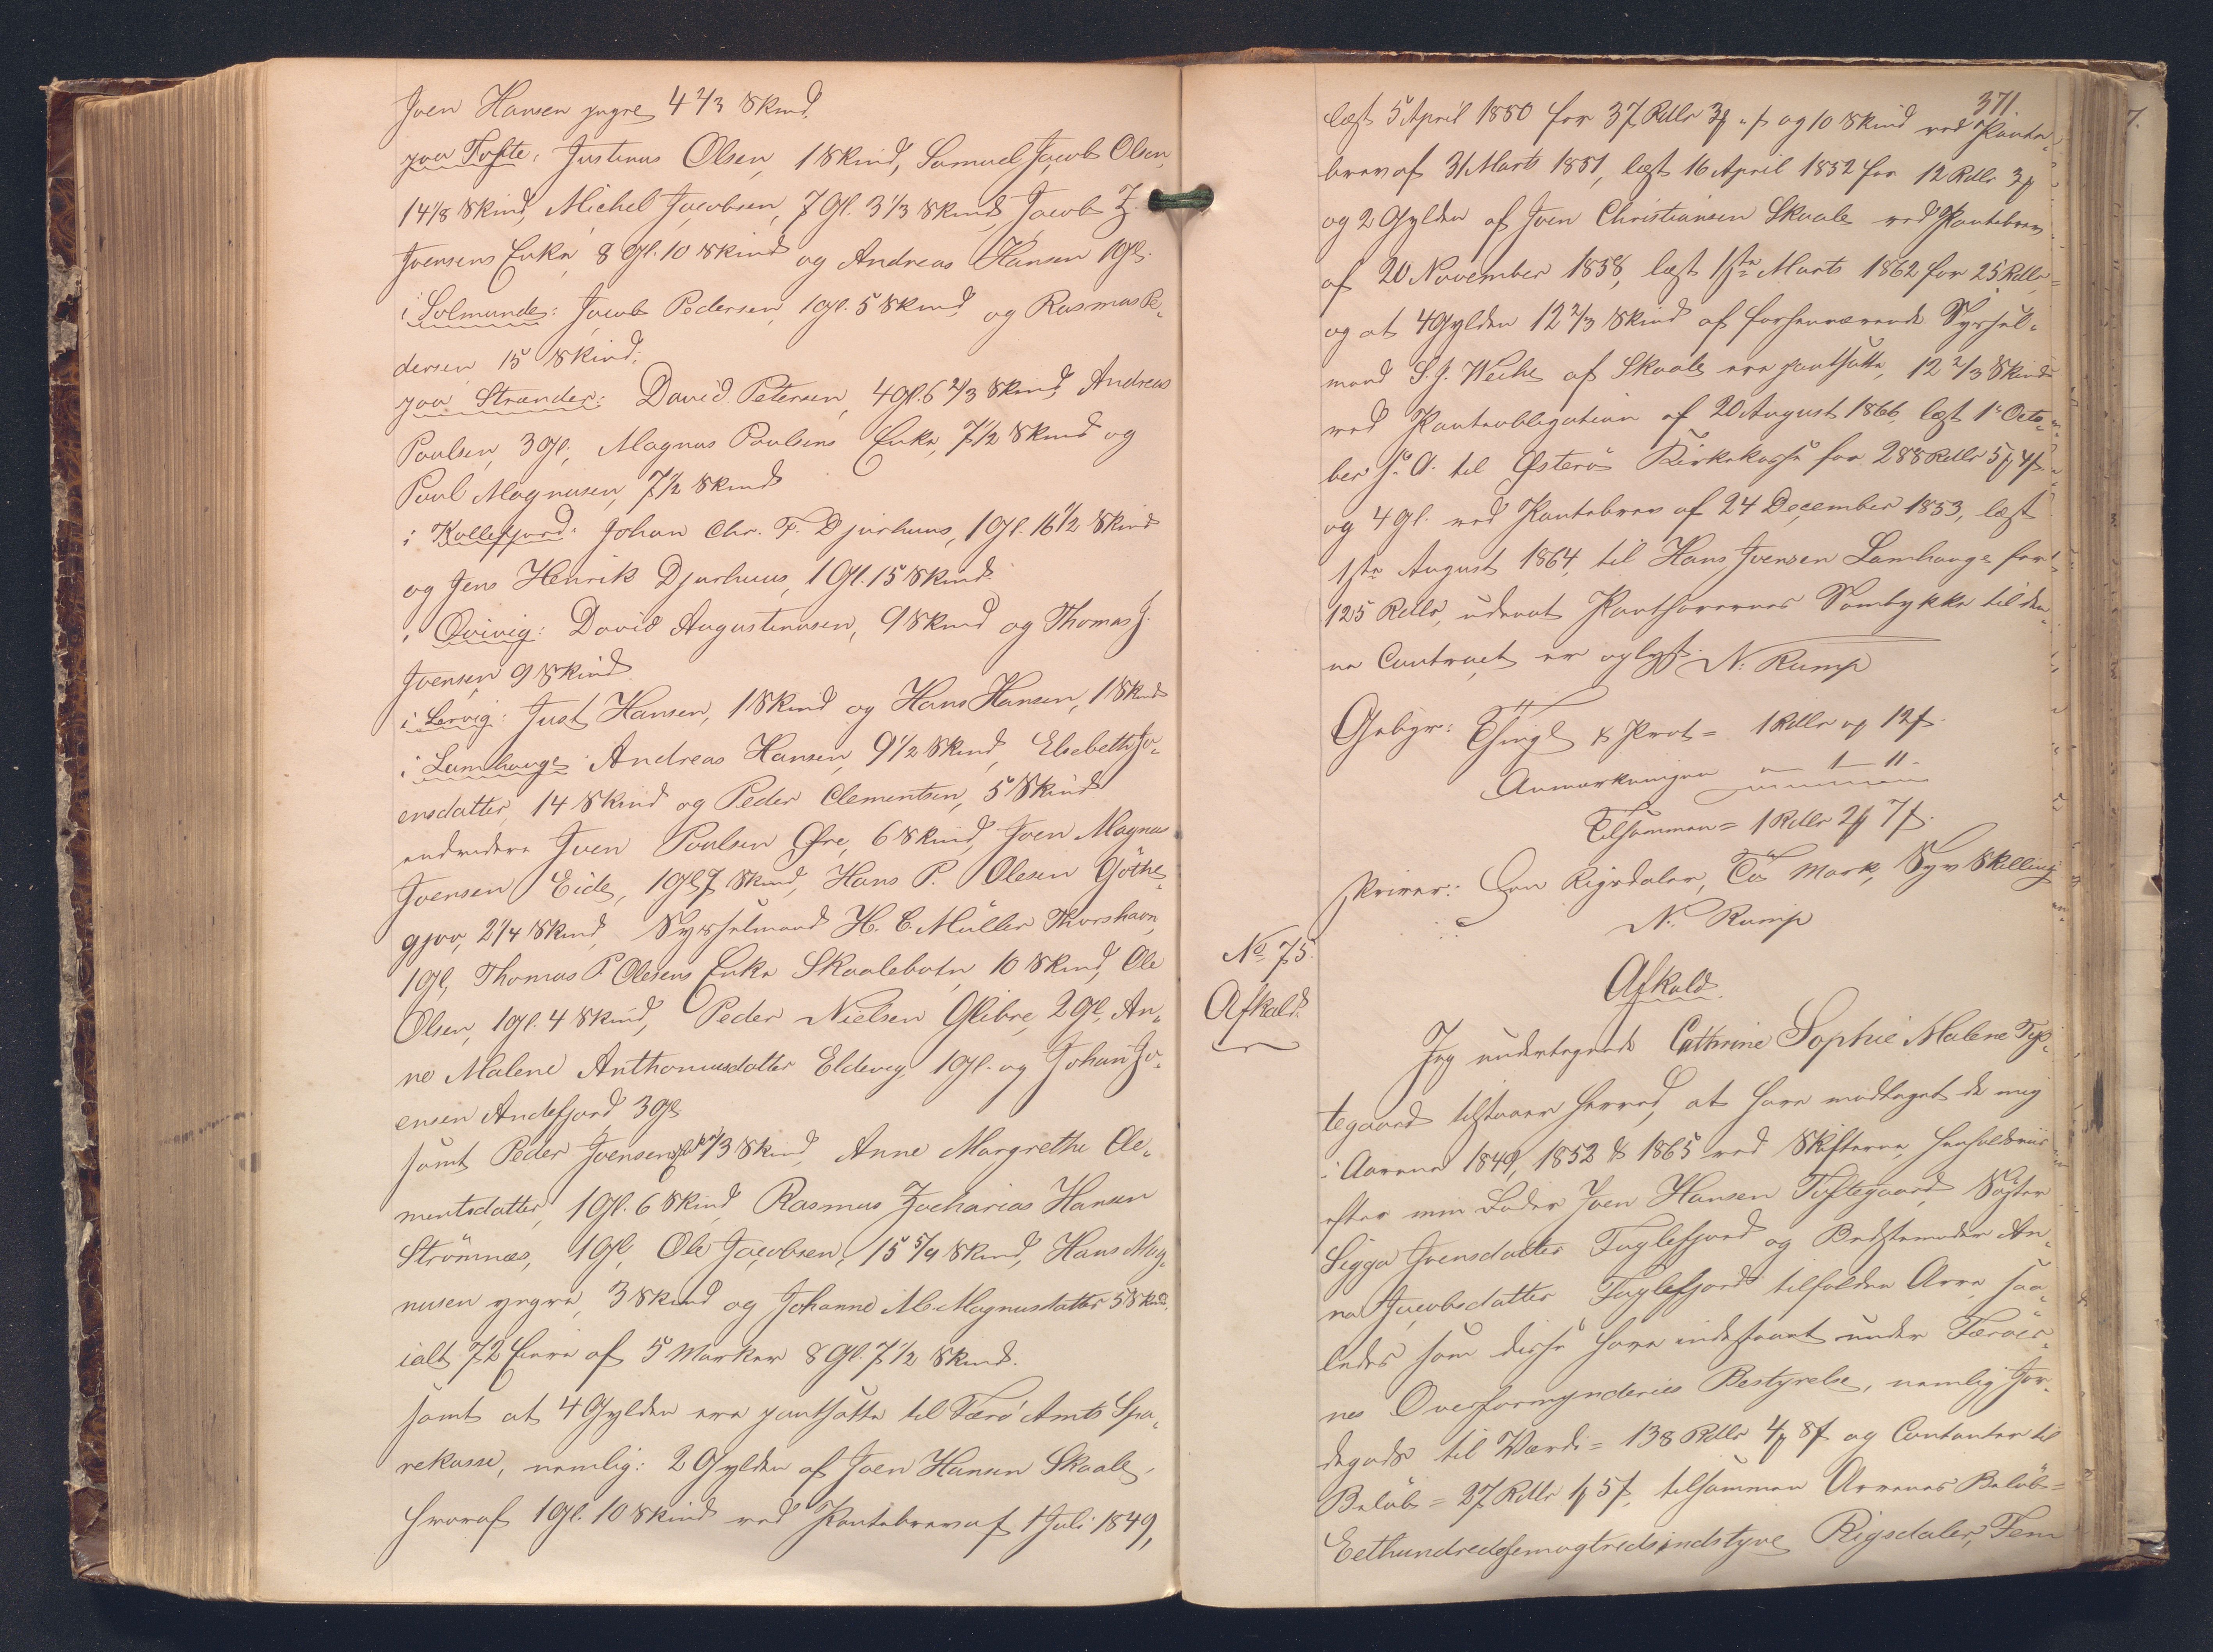 Joen Hansen yngre 4 2/3 Skind,
paa Tofte: Justinus Olsen, 1 Skind, Samuel Jacob Olsen,
14 1/8 Skind, Michel Jacobsen, 7 Gl. 3 1/3 Skind, Jacob Z.
Joensens Enke 8 Gl. 10 Skind og Andreas Hansen 1 Gl.
i Solmunde: Jacob Pedersen 1 Gl. 5 Skind og Rasmus Pe-
dersen 15 Skind.
paa Strænder: David Petersen, 4 Gl. 6 2/3 Skind, Andreas
Poulsen, 3 Gl., Magnus Poulsens Enke, 7 1/2 Skind og
Poul Magnusen, 7 1/2 Skind
i Kollefjord: Johan Chr. F. Djurhuus, 1 Gl. 16 1/2 Skind
og Jens Henrik Djurhuus, 1 Gl. 15 Skind.
i Qvivig: David Augustinusen, 9 Skind og Thomas J.
Joensen 9 Skind.
i Lervig: Just Hansen, 1 Skind og Hans Hansen, 1 Skind
i Lamhauge Andreas Hansen, 9 1/2 Skind, Elsebeth Jo-
ensdatter, 14 Skind og Peder Clementsen, 5 Skind
endvidere Joen Poulsen Øre, 6 Skind, Joen Magnus
Joensen Eide, 1 Gl. 7 Skind, Hans P. Olesen Göthe-
gjov, 2 1/4 Skind, Sysselmand H. C. Müller Thorshavn,
1 Gl., Thomas P. Olesens Enke Skaalebotn, 10 Skind, Ole
Olsen, 1 Gl. 4 Skind, Peder Nielsen Glibre, 2 Gl., An-
ne Malene Anthoniusdatter Eldevig, 1 Gl. og Johan Jo-
ensen Andefjord 3 Gl.
samt Peder Joensen 1/3 Skind, Anne Margrethe Cle-
mentsdatter, 1 Gl. 6 Skind, Rasmus Zacharias Hansen
Strömnæs, 1 Gl., Ole Jacobsen, 15 5/9 Skind, Hans Mag-
nusen yngre, 3 Skind og Johanne M. Magnusdatter 5 Skind.
ialt 72 Eiere af 5 Marker 8 Gl. 7 1/2 Skind.
samt at 4 Gylden ere pantsatte til Færø Amts Spa-
rekasse, nemlig: 2 Gylden af Joen Hansen Skaale,
hvoraf 1 Gl. 10 Skind ved Pantebrev af 1 Juli 1849,
371.
læst 5 April 1850 for 37 Rdlr 3 # og 10 Skind ved Pante-
brev af 31 Marts 1851, læst 16 April 1852 for 12 Rdlr 3 #
og 2 Gylden af Joen Christiansen Skaale ved Pantebrev
af 20 November 1858, læst 1ste Marts 1862 for 25 Rdlr,
og at 4 Gylden 12 2/3 Skind af forhenværende Syssel-
mand S. J. Weihe af Skaale ere pantsatte, 12 2/3 Skind
ved Panteobligation af 20 August 1866, læst 1 Octo-
ber s. A. til Østerø Kirkekasse for 288 Rdlr 5 # 4 ß
og 4 Gl. ved Pantebrev af 24 December 1853, læst
1ste August 1864, til Hans Joensen Lamhauge for
125 Rdlr, udenat Panthavernes Samtykke til den-
ne Contract er oplyst. N. Rump
Gebyr: Thingl. & Prot = 1 Rdlr og 12 ß.
Anmærkningen " 1 11.
Tilsammen = 1 Rdlr 2 # 7 ß.
skriver: Een Rigsdaler, To Mark, Syv Skilling
N. Rump
No 75.
Afkald.
Afkald.
Jeg undertegnede Cathrine Sophie Malene Tof-
tegaard tilstaaer herved, at have modtaget de mig
i Aarene 1849, 1852 & 1865 ved Skifterne, henholdsviis
efter min Fader Joen Hansen Toftegaard, Søster
Sigga Joensdatter Fuglefjord og Bedstemoder An-
ne Jacobsdatter Fuglefjord tilfaldne Arve, saa-
ledes som disse have indestaaet under Færøer-
nes Overformynderies Bestyrelse, nemlig Jor-
degods til Værdi = 138 Rdlr 4 # 8 ß og Contanter til
Beløb = 27 Rdlr 1 # 5 ß, tilsammen Arvenes Beløb =
Eethundredefemogtredsindstyve Rigsdaler, Fem